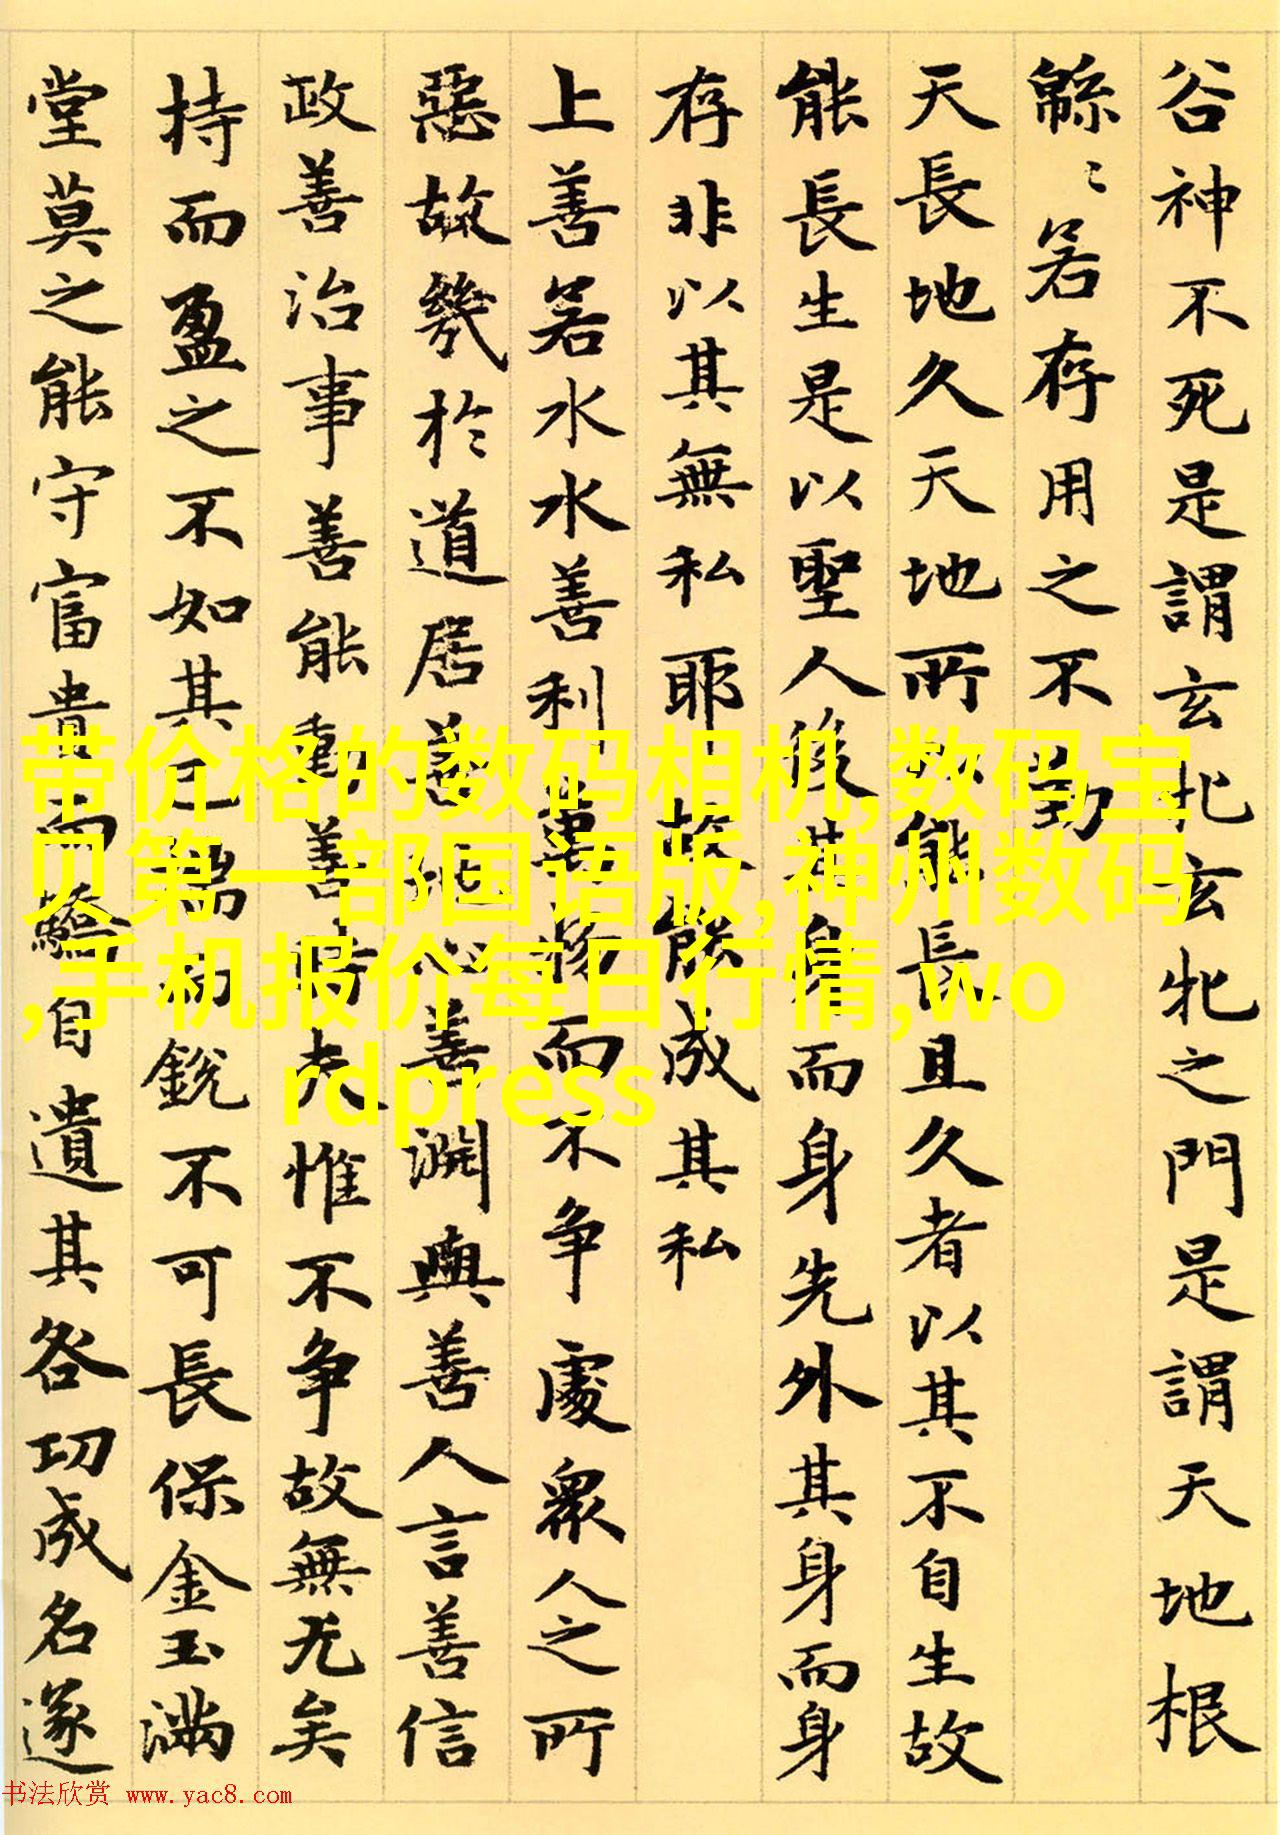 谷神不死是謂玄牝玄牝之門是謂天地根
緜〻若存用之不勤
天長地久天地所以能長且久者以其不自生故
能長生是以聖人後其身而身先外其身而身
存非以其無私耶故能成其私
上善若水水善利萬物而不争處衆人之所
惡故幾於道居善地心善淵與善人言善信
政善治事善能動善時夫惟不争故無尤矣
持而盈之不如其已揣而銳不可長保金玉滿
堂莫之能守富貴而驕自遺其咎功成名遂
带价格的数码相机,数码宝
贝第一部国语版,神州数码
,手机报价每日行情,wo
rdpress
书法欣赏 www.yac8.com